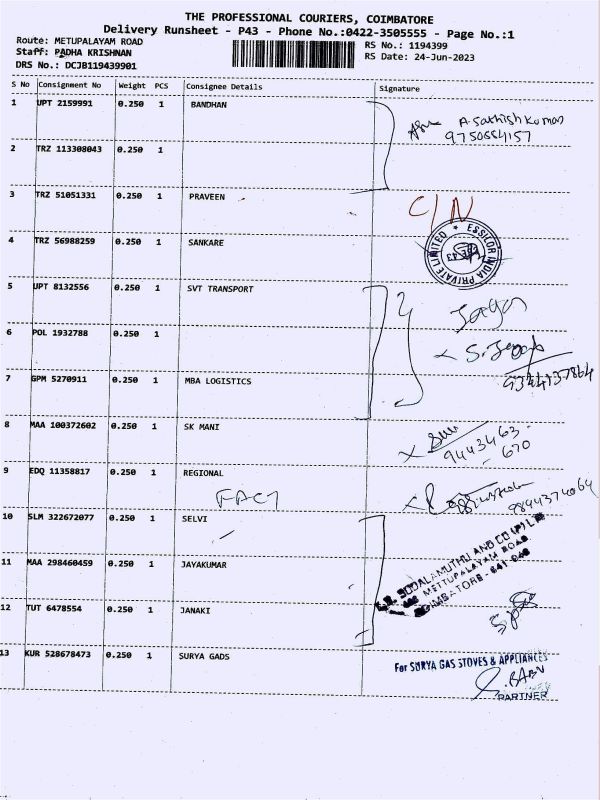 THE PROFESSIONAL COURIERS, COIMBATORE
Delivery Runsheet - P43 - Phone No.:0422-3505555 - Page No.:1
Route: METUPALAYAM ROAD
Staff: PADHA KRISHNAN
DRS No.: DCJB119439901
RS No.: 1194399
RS Date: 24-Jun-2023
S No Consignment No Weight PCS Consignee Details Signature
1 UPT 2159991 0.250 1 BANDHAN
A. Sathish Kumar
9750554157
2 TRZ 113308043 0.250 1
3 TRZ 51051331 0.250 1 PRAVEEN
C/N
4 TRZ 56988259 0.250 1 SANKARE
ESSILOR INDIA PRIVATE LIMITED
5 UPT 8132556 0.250 1 SVT TRANSPORT
6 POL 1932788 0.250 1
7 GPM 5270911 0.250 1 MBA LOGISTICS
9344137864
8 MAA 100372602 0.250 1 SK MANI
9443463
670
9 EDQ 11358817 0.250 1 REGIONAL
FACT
9844374064
10 SLM 322672077 0.250 1 SELVI
11 MAA 298460459 0.250 1 JAYAKUMAR
AND CO (P) LTD
METTUPALAYAM ROAD
COIMBATORE - 641
12 TUT 6478554 0.250 1 JANAKI
13 KUR 528678473 0.250 1 SURYA GADS
For SURYA GAS STOVES & APPLIANCES
BABU
PARTNER